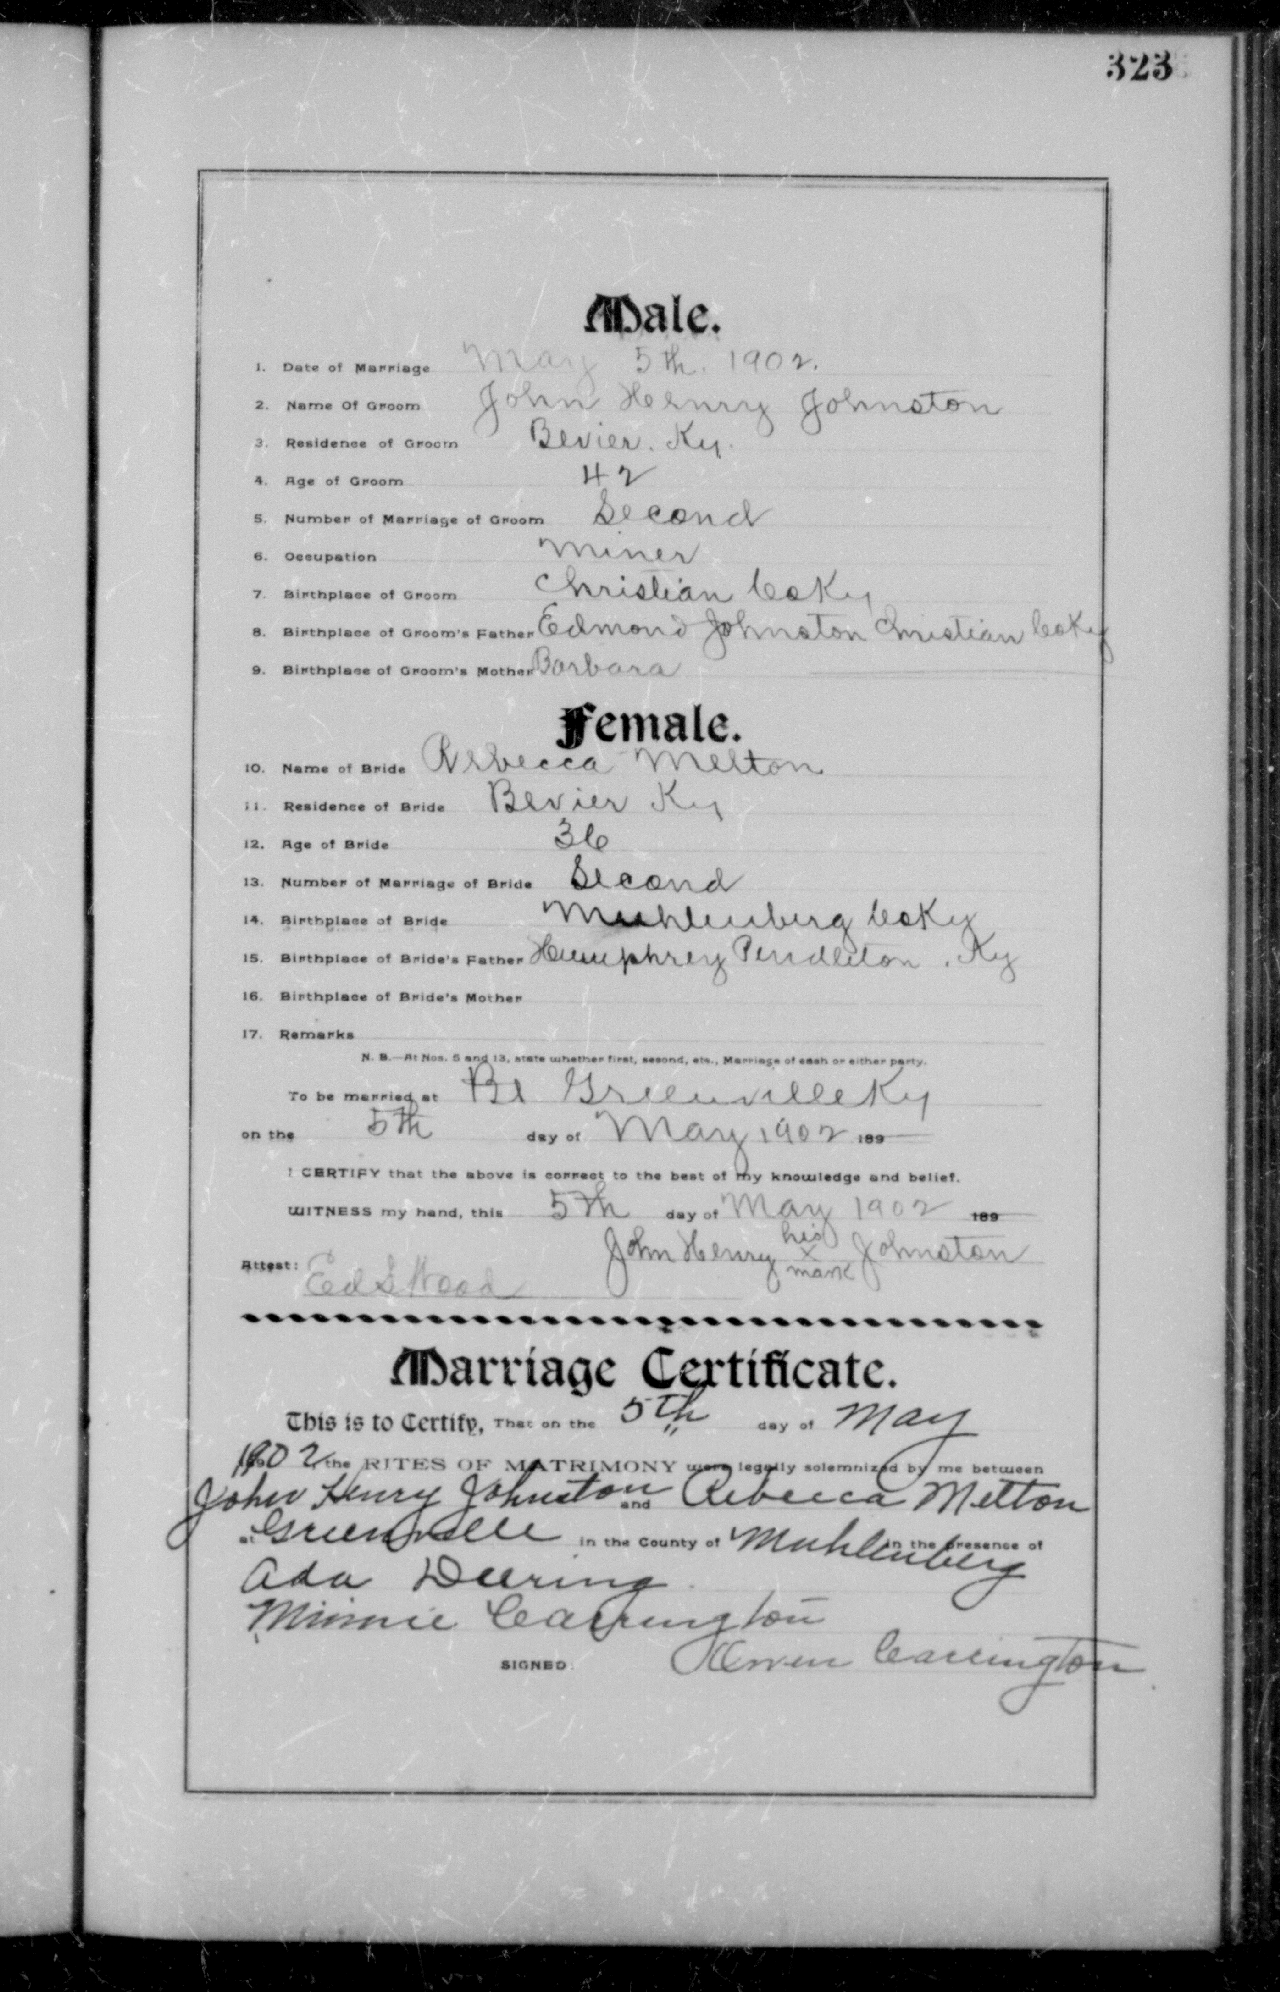 323
Male.
1. Date of Marriage May 5th. 1902.
2. Name Of Groom John Henry Johnston
3. Residence of Groom Bevier. Ky.
4. Age of Groom 42
5. Number of Marriage of Groom Second
6. Occupation Miner
7. Birthplace of Groom Christian Co Ky
8. Birthplace of Groom's Father Edmond Johnston Christian Co Ky
9. Birthplace of Groom's Mother Barbara
Female.
10. Name of Bride Rebecca Melton
11. Residence of Bride Bevier Ky
12. Age of Bride 36
13. Number of Marriage of Bride Second
14. Birthplace of Bride Muhlenberg Co Ky
15. Birthplace of Bride's Father Humphrey Pendleton . Ky
16. Birthplace of Bride's Mother
17. Remarks
N. B.—At Nos. 5 and 13, state whether first, second, etc., Marriage of each or either party.
To be married at Be Greenville Ky
on the 5th day of May 1902 189
I CERTIFY that the above is correct to the best of my knowledge and belief.
WITNESS my hand, this 5th day of May 1902 189
John Henry his x mark Johnston
Attest: Ed S Wood
Marriage Certificate.
This is to Certify, That on the 5th day of May
1902, the RITES OF MATRIMONY were legally solemnized by me between
John Henry Johnston and Rebecca Melton
at Greenville in the County of Muhlenberg in the presence of
Ada Deering
Minnie Carrington
SIGNED: Owen Carrington